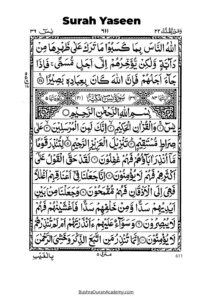 Surah Yaseen
٦١١
اللّٰهُ النَّاسَ بِمَا كَسَبُوْا مَا تَرَكَ عَلٰى ظَهْرِهَا مِنْ
دَآبَّةٍ وَّلٰكِنْ يُّؤَخِّرُهُمْ اِلٰٓى اَجَلٍ مُّسَمًّى فَاِذَا
جَآءَ اَجَلُهُمْ فَاِنَّ اللّٰهَ كَانَ بِعِبَادِهٖ بَصِيْرًا
بِسْمِ اللّٰهِ الرَّحْمٰنِ الرَّحِيْمِ
يٰسٓ وَالْقُرْاٰنِ الْحَكِيْمِ اِنَّكَ لَمِنَ الْمُرْسَلِيْنَ عَلٰى
صِرَاطٍ مُّسْتَقِيْمٍ تَنْزِيْلَ الْعَزِيْزِ الرَّحِيْمِ لِتُنْذِرَ قَوْمًا
مَّآ اُنْذِرَ اٰبَآؤُهُمْ فَهُمْ غٰفِلُوْنَ لَقَدْ حَقَّ الْقَوْلُ عَلٰٓى
اَكْثَرِهِمْ فَهُمْ لَا يُؤْمِنُوْنَ اِنَّا جَعَلْنَا فِيْٓ اَعْنَاقِهِمْ اَغْلٰلًا
فَهِيَ اِلَى الْاَذْقَانِ فَهُمْ مُّقْمَحُوْنَ وَجَعَلْنَا مِنْۢ بَيْنِ
اَيْدِيْهِمْ سَدًّا وَّمِنْ خَلْفِهِمْ سَدًّا فَاَغْشَيْنٰهُمْ فَهُمْ
لَا يُبْصِرُوْنَ وَسَوَآءٌ عَلَيْهِمْ ءَاَنْذَرْتَهُمْ اَمْ لَمْ تُنْذِرْهُمْ
لَا يُؤْمِنُوْنَ اِنَّمَا تُنْذِرُ مَنِ اتَّبَعَ الذِّكْرَ وَخَشِيَ الرَّحْمٰنَ
بِالْغَيْبِ
611
BushraQuranAcademy.com